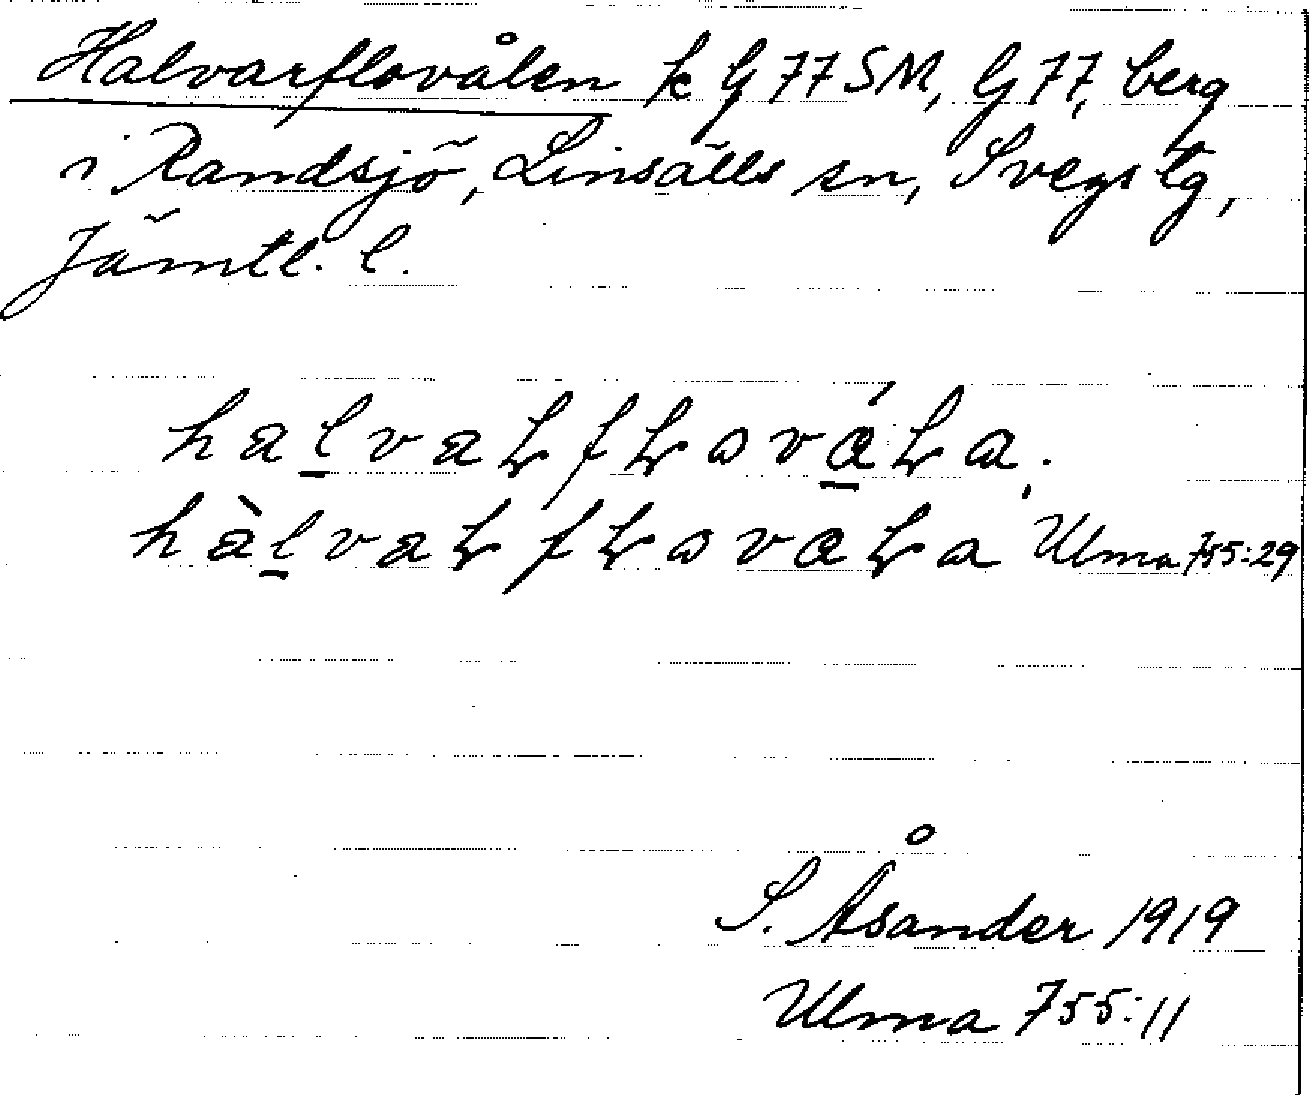 Halvarflovålen k G 77 SM, G 77, berg
i Randsjö, Linsälls sn, Svegs tg,
Jämtl. l.
Ulma 755:29
S. Åsander 1919
Ulma 755:11